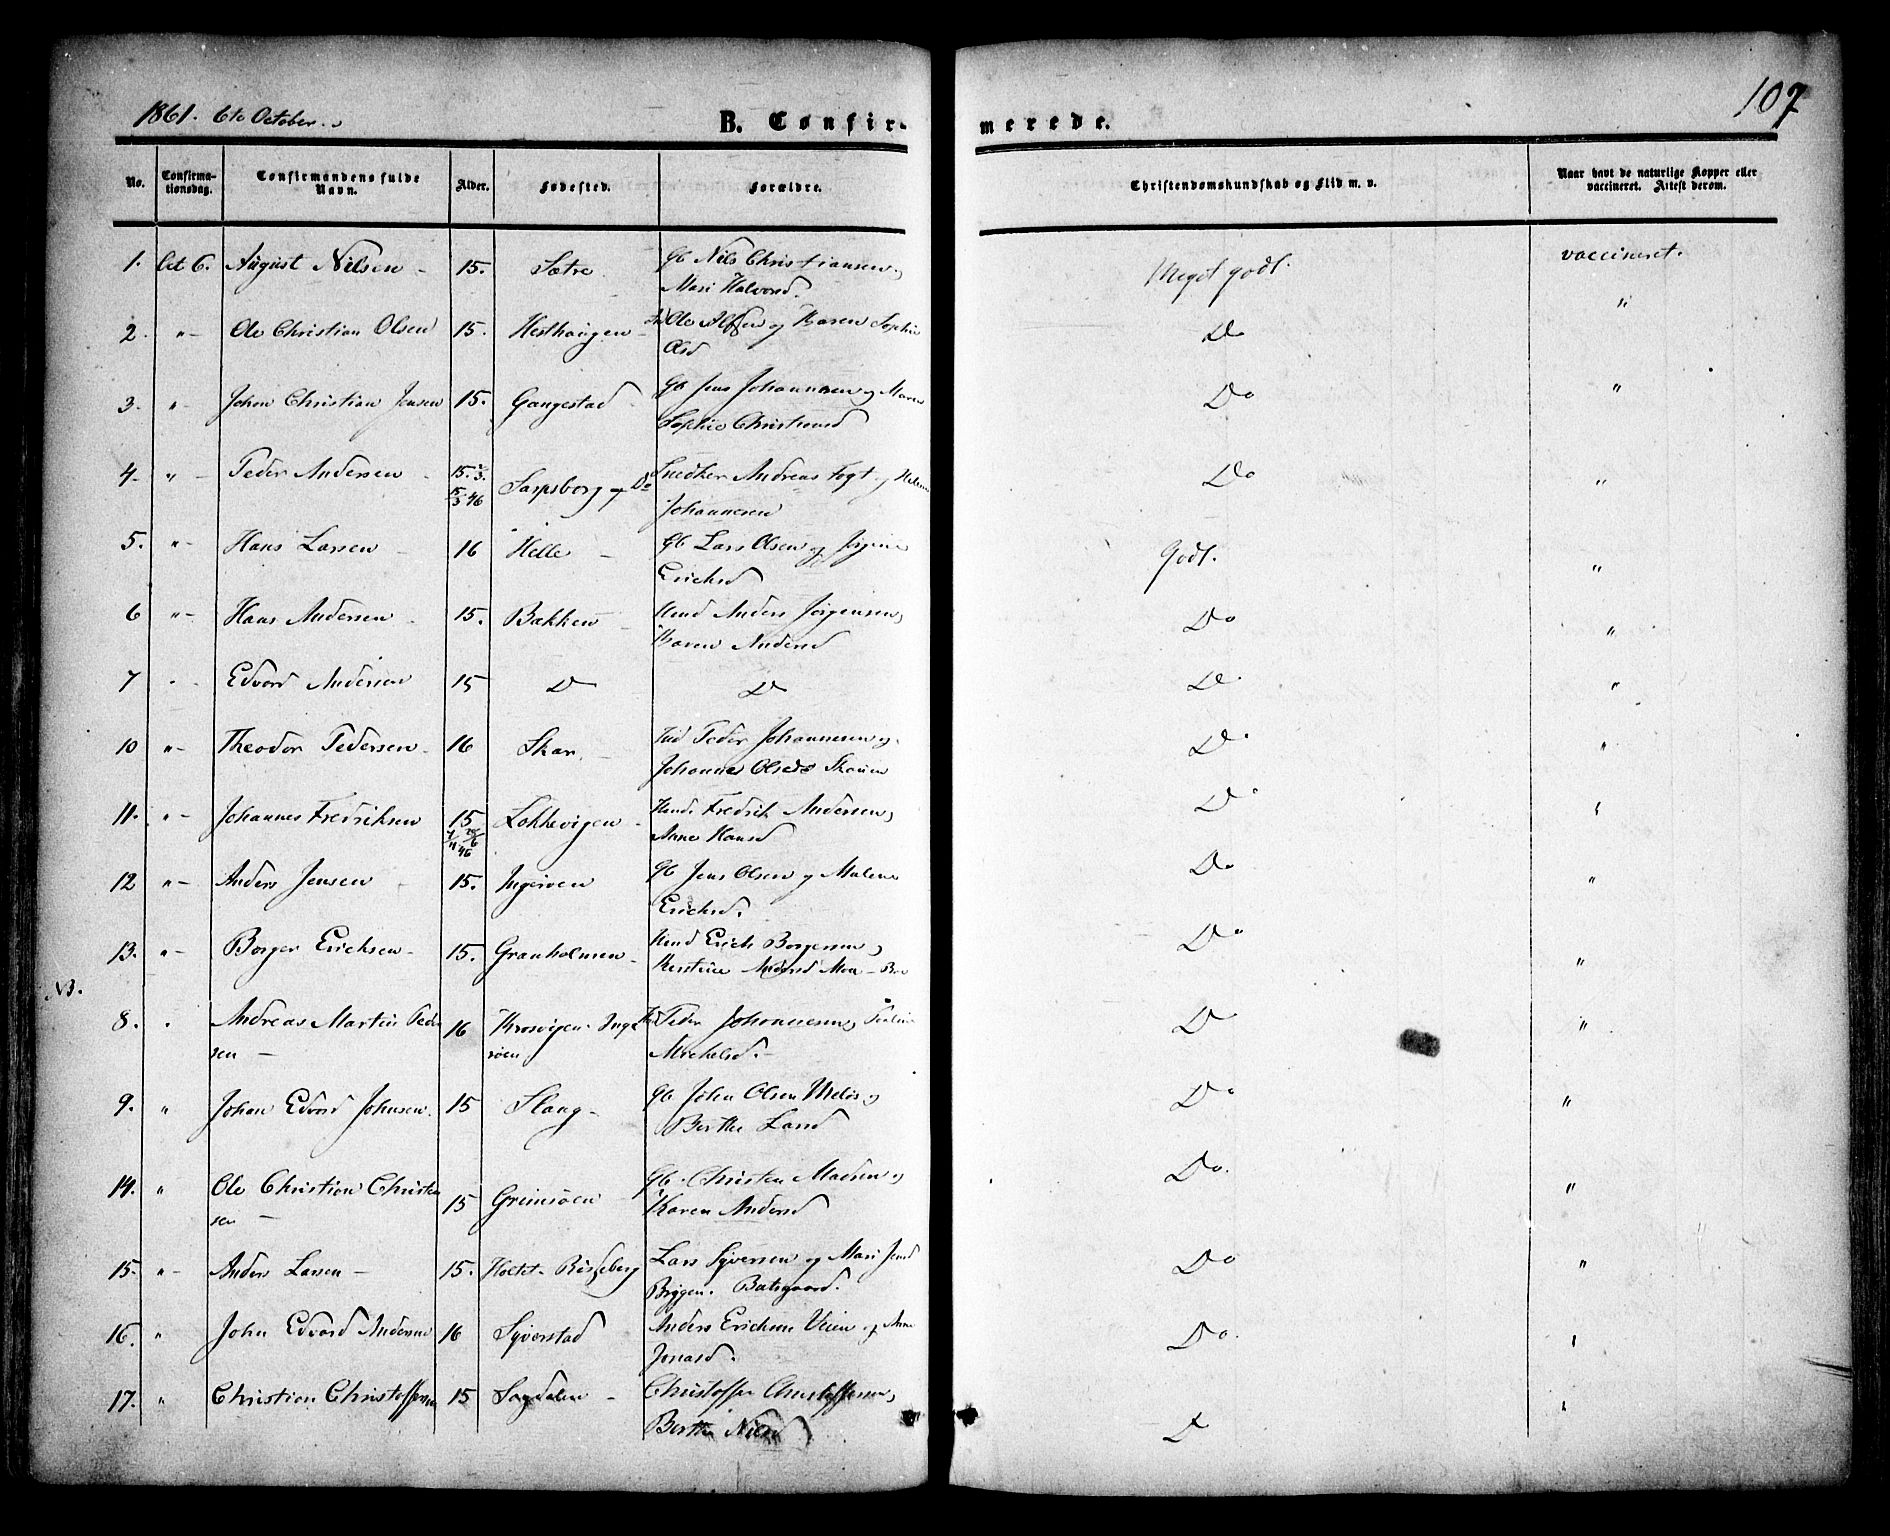 1861. 6te October.
B. Confir-
merede.
107
No.
Confirma-
tionsdag.
Confirmandens fulde
Navn.
Alder.
Fødested.
Forældre.
Christendomskundskab og Flid m. v.
Naar havt de naturlige Kopper eller
vaccineret. Attest derom.
1. Oct 6. August Nilsen - 15. Sætre Gb Nils Christiansen og
Mari Halvorsd. Meget godt. vaccineret.
2. "- Ole Christian Olsen 15. Hesthaugen - Ole Olsen og Karen Sophie
Olsd Do "
3. "- Johan Christian Jensen 15. Gangestad Gb Jens Johannesen og Maren
Sophie Christiansd Do "
4. "- Peder Andersen - 15.
Sarpsborg Snedker Andreas Fogt og Helene
Johannesen Do "
5. "- Hans Larsen - 16 Helle - Gb Lars Olsen og Jørgine
Ericksd Godt. "
6 "- Hans Andersen 15. Bakken - Anders Jørgensen,
Karen Andersd Do "
7 Edvard Andersen 15 Do Do Do "
10 "- Theodor Pedersen - 16 Skar. - Ind Peder Johannesen og
Johannes Olsen Do "
11. "- Johannes Fredriksen 15 Løkkevigen - Fredrik Andersen,
Anne Hansd Do "
12 "- Anders Jensen 15. Ingerøen Gb Jens Olsen og Malene
Ericksd. Do "
13. "- Borger Ericksen - 15. Granholmen - Erich Borgersen og
Kerstine Andersd Do "
NB.
8. Andreas Martin Peder
sen - 16 Krosvigen - Inge
røen Peder Johannesen,
Michelsd. - Do "
9. " Johan Edvard Johnsen. 15 Slang - Gb John Olsen og
Berthe Larsd Do "
14. " Ole Christian Christen
sen - 15 Greinsøen Gb. Christen Madsen og
Karen Andersd Do. "
15. "- Anders Larsen - 15. Holtet - Lars Syversen og Mari
Do "
16. " John Edvard Andersen 16 Syverstad Anders Ericksen Veien og Anne
Jonasd. Do. "
17. " Christian Christoffersen 15 Sagdalen - Christoffer Christoffersen,
Berthe Nilsd Do "